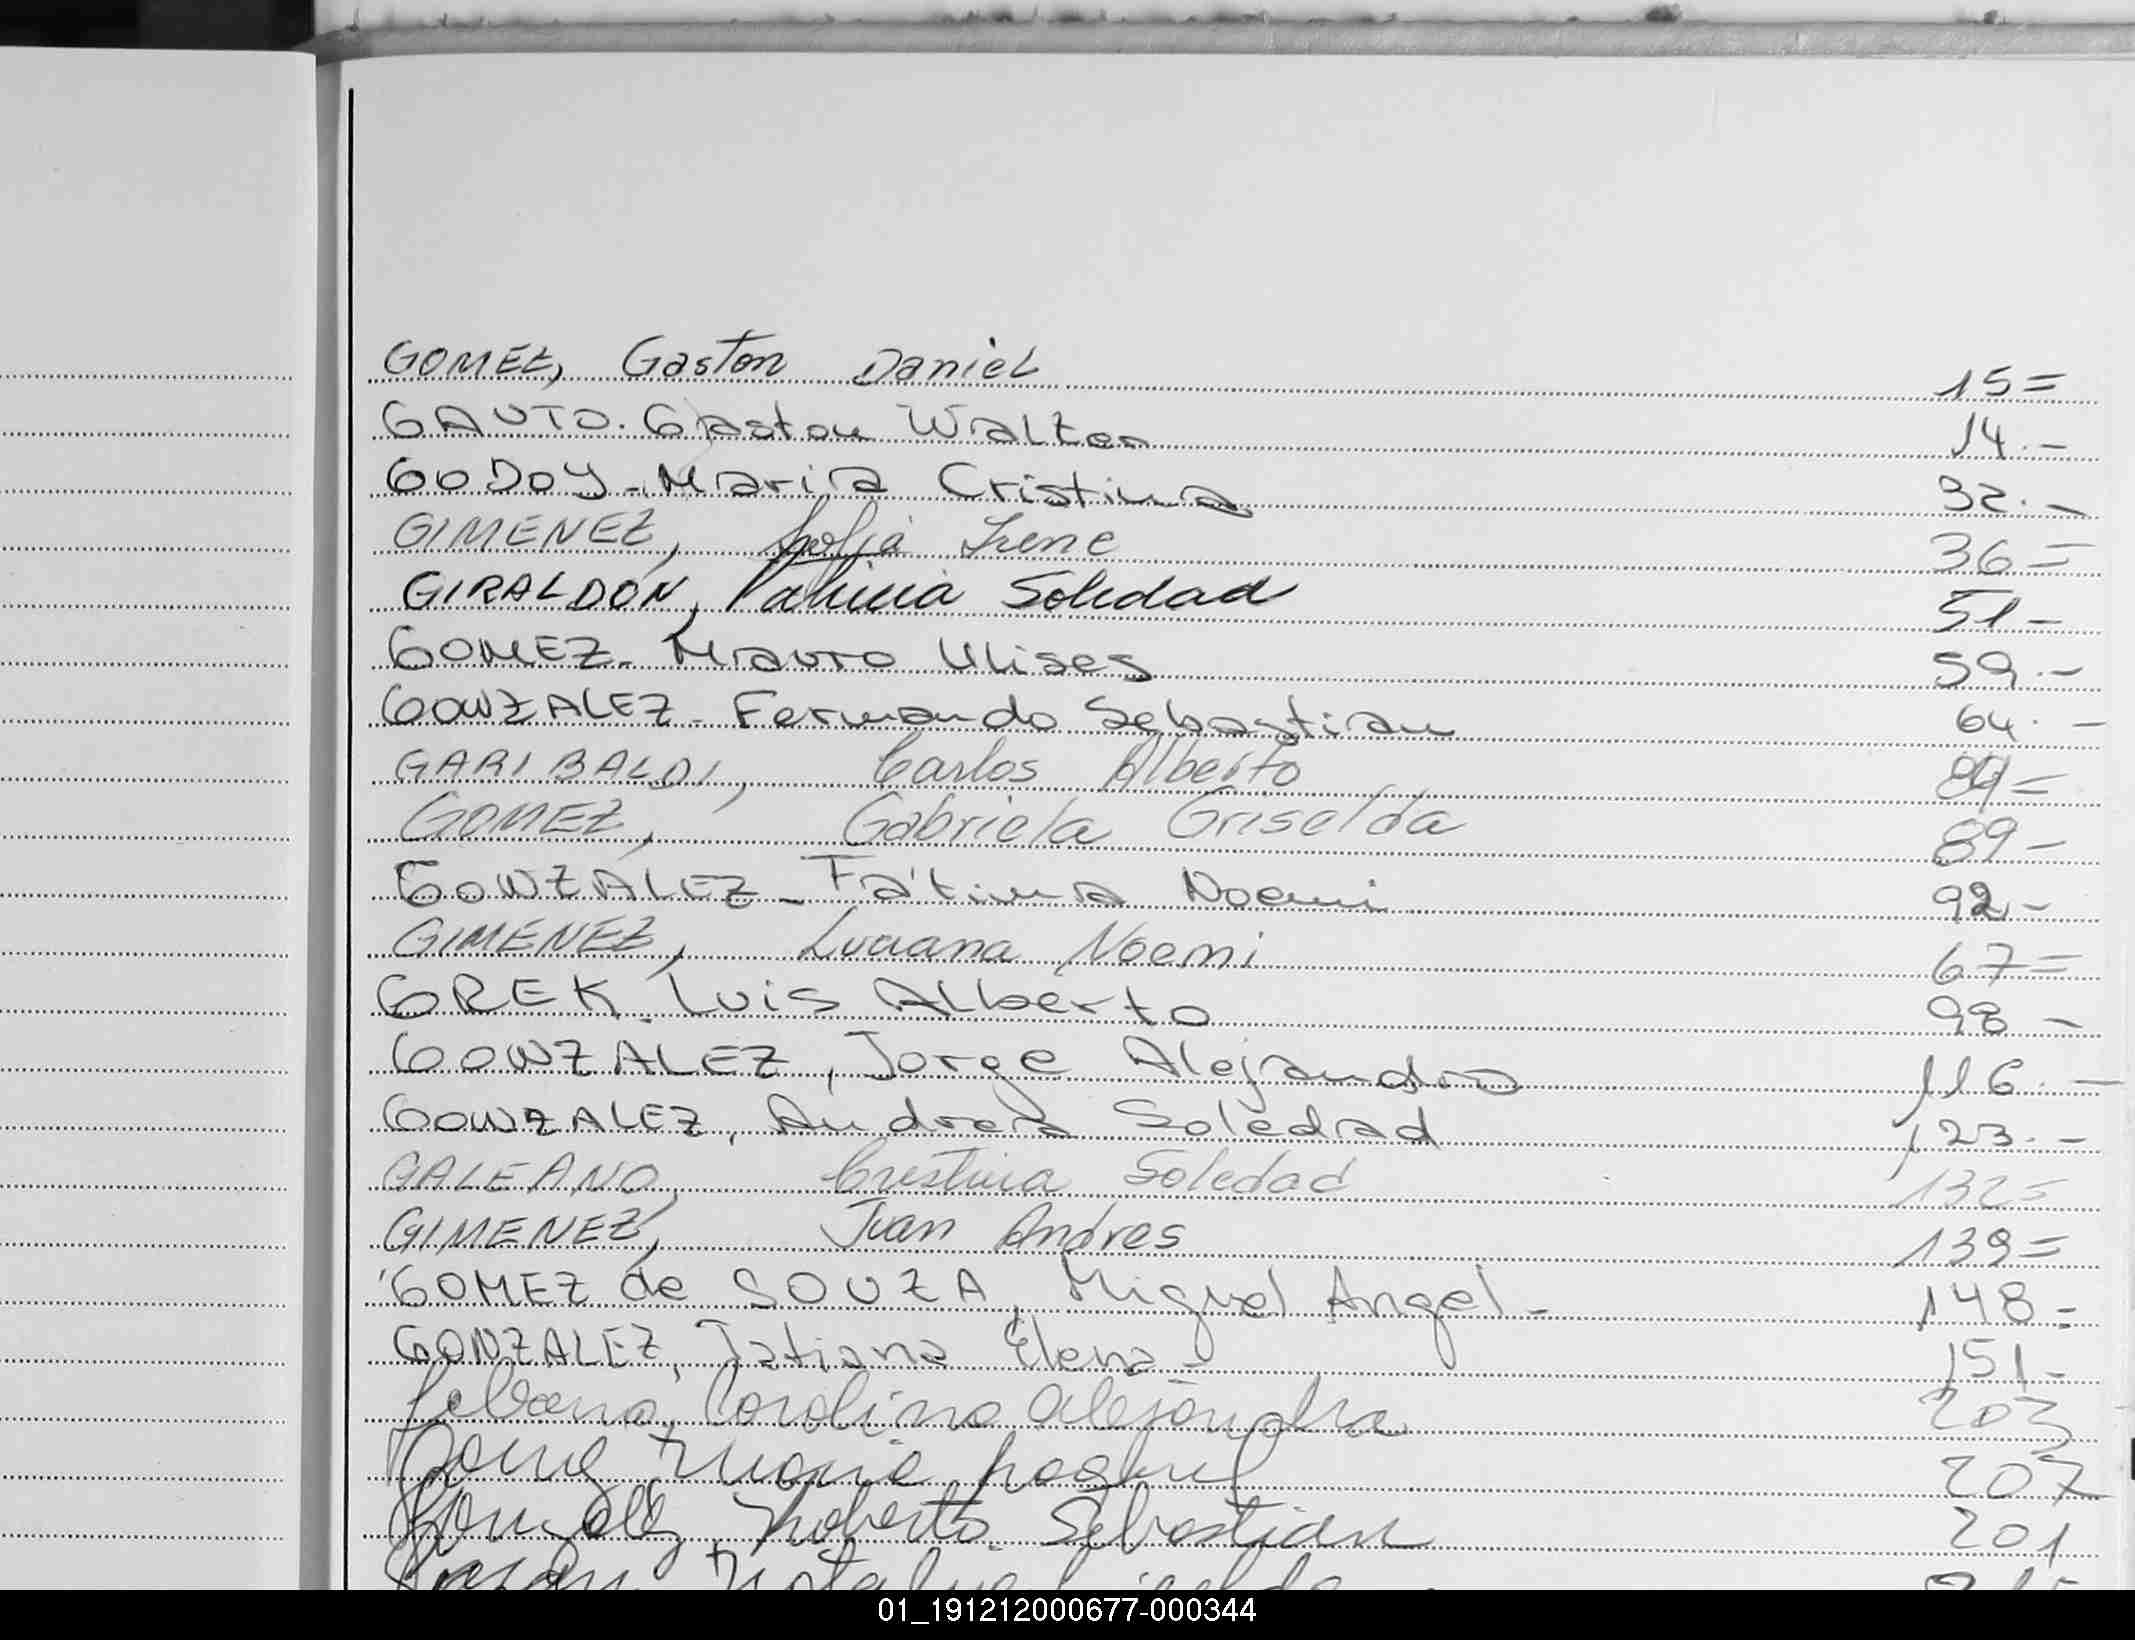 GOMEZ, Gaston Daniel 15=
GAUTO. Gaston Walter 14.-
GODOY - Maria Cristina 32.-
GIMENEZ, Irene 36=
GIRALDON, Patricia Soledad 51-
GOMEZ - Mauro Ulises 59.-
GONZALEZ - Fernando Sebastian 64.-
GARIBALDI, Carlos Alberto =
GOMEZ, Gabriela Griselda 89-
GONZALEZ - Fátima Noemi 92-
GIMENEZ, Luciana Noemi 67=
GREK. Luis Alberto 98-
GONZALEZ, Jorge Alejandro 116.-
GONZALEZ, Andrea Soledad 123.-
GALEANO, Cristina Soledad 132=
GIMENEZ, Juan Andres 139=
GOMEZ de SOUZA, Miguel Angel- 148=
GONZALEZ, Tatiana Elena- 151-
Carolina Alejandra 203
Maria Raquel 207
Gonzalez, Roberto Sebastian 201
01_191212000677-000344